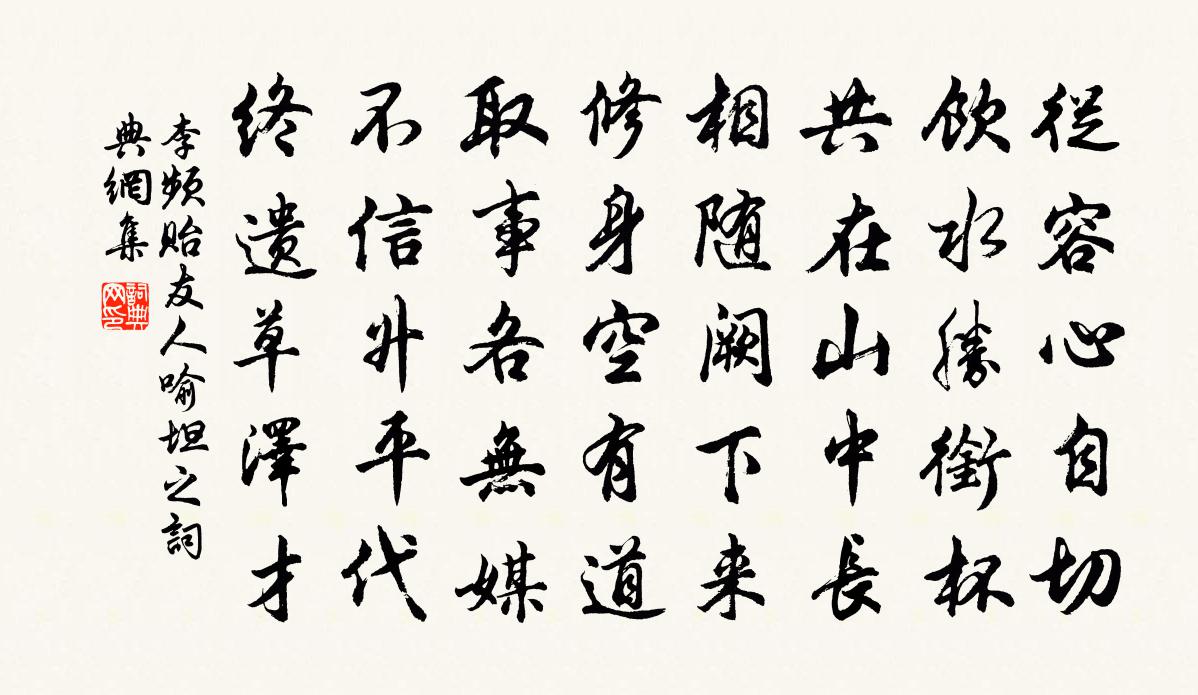 從容心自切
飲水勝銜杯
共在山中長
相随闕下来
修身空有道
取事各無媒
不信升平代
終遺草澤才
李频貽友人喻坦之詞
典網集
詞典
网印